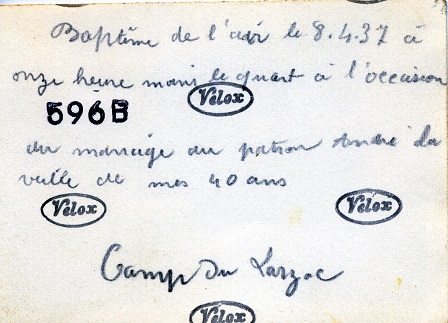 Baptême de l'air le 8.4.37 à
onze heure moin le quart à l'occasion
Velox
596B
du mariage du patron André la
veille de mes 40 ans
Velox
Velox
Camp du Larzac
Velox